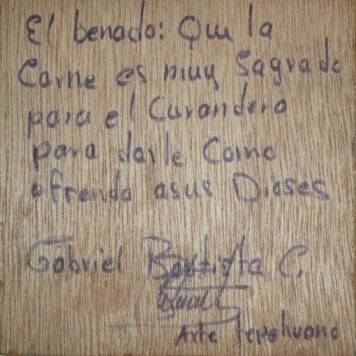 El benado: Que la
Carne es muy Sagrado
para el Curandero
para darle Como
ofrenda asus Dioses
Gabriel Bautista C.
Arte tepehuano